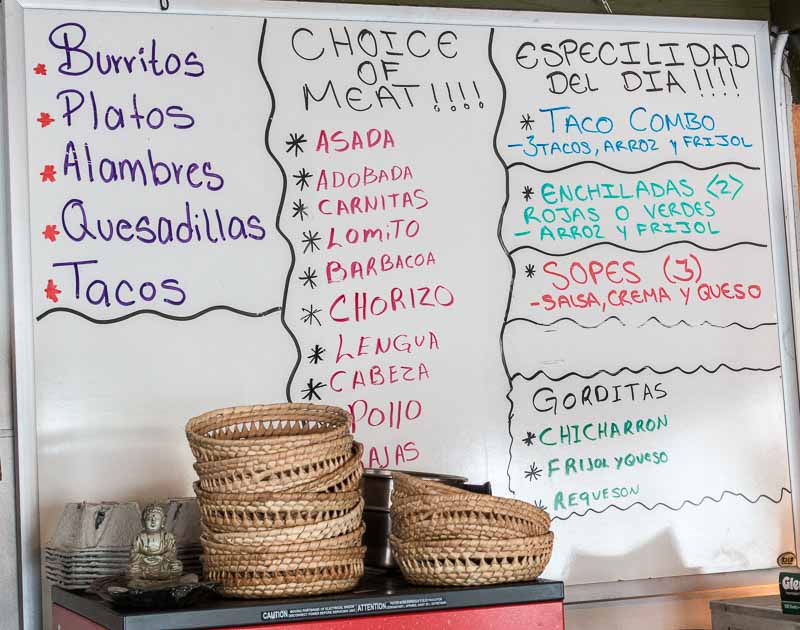 * Burritos
* Platos
* Alambres
* Quesadillas
* Tacos
CHOICE
OF
MEAT!!!!
* ASADA
* ADOBADA
* CARNITAS
* LOMITO
* BARBACOA
* CHORIZO
* LENGUA
* CABEZA
POLLO
AJAS
ESPECILIDAD
DEL DIA!!!!
* TACO COMBO
-3TACOS, ARROZ Y FRIJOL
* ENCHILADAS <2>
ROJAS O VERDES
- ARROZ Y FRIJOL
* SOPES (3)
-SALSA, CREMA Y QUESO
GORDITAS
* CHICHARRON
* FRIJOL Y QUESO
* REQUESON
CAUTION
ATTENTION